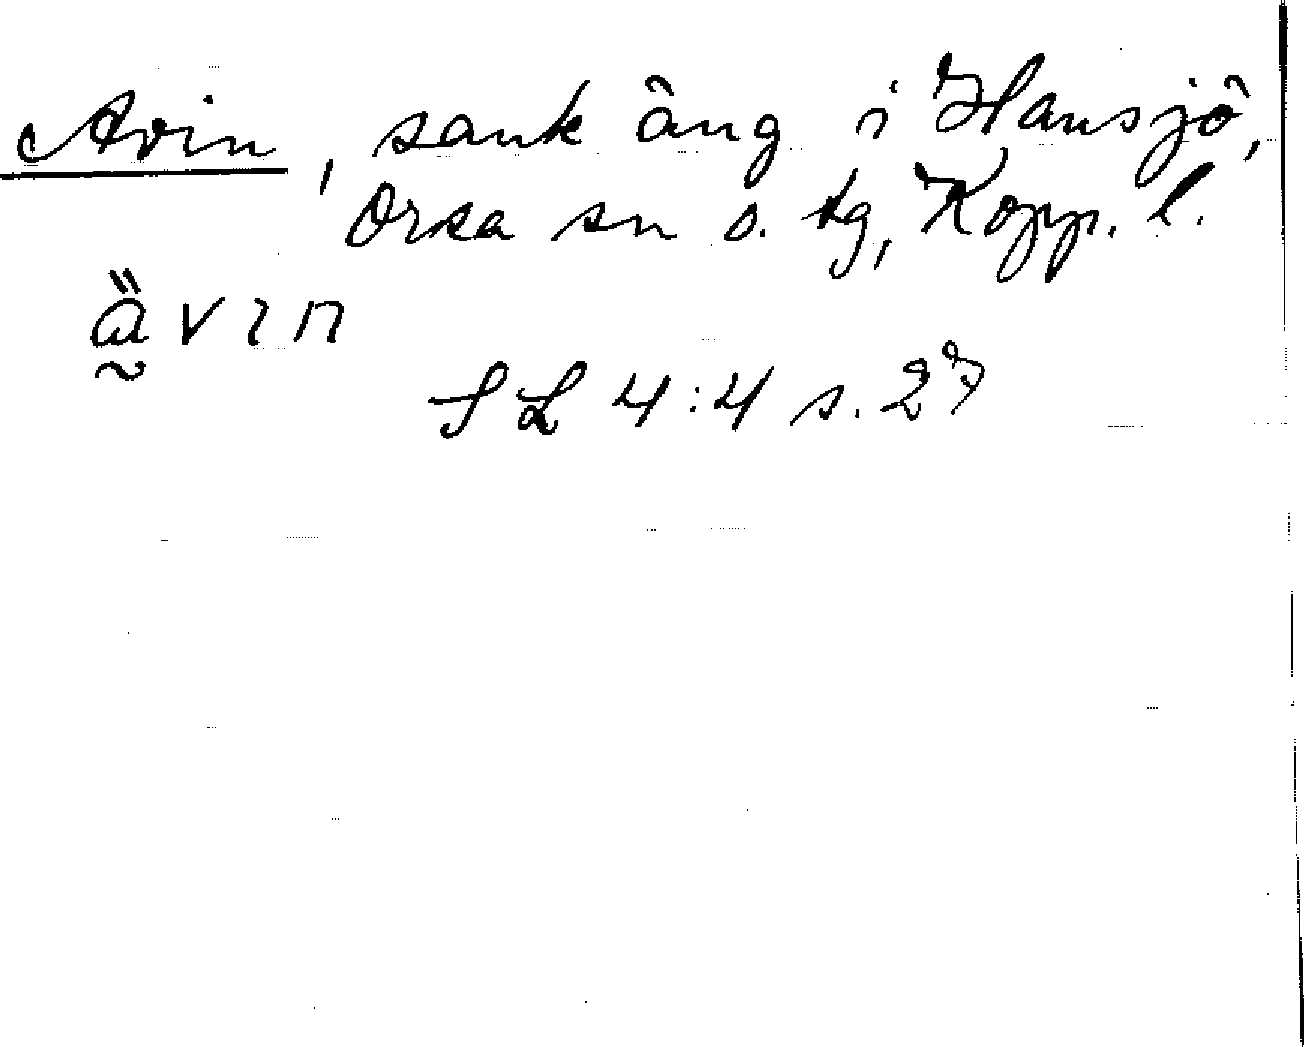 Avin, sank äng i Hansjö,
Orsa sn o. tg, Kopp. l.
a̰̎vın
SL 4:4 s. 27